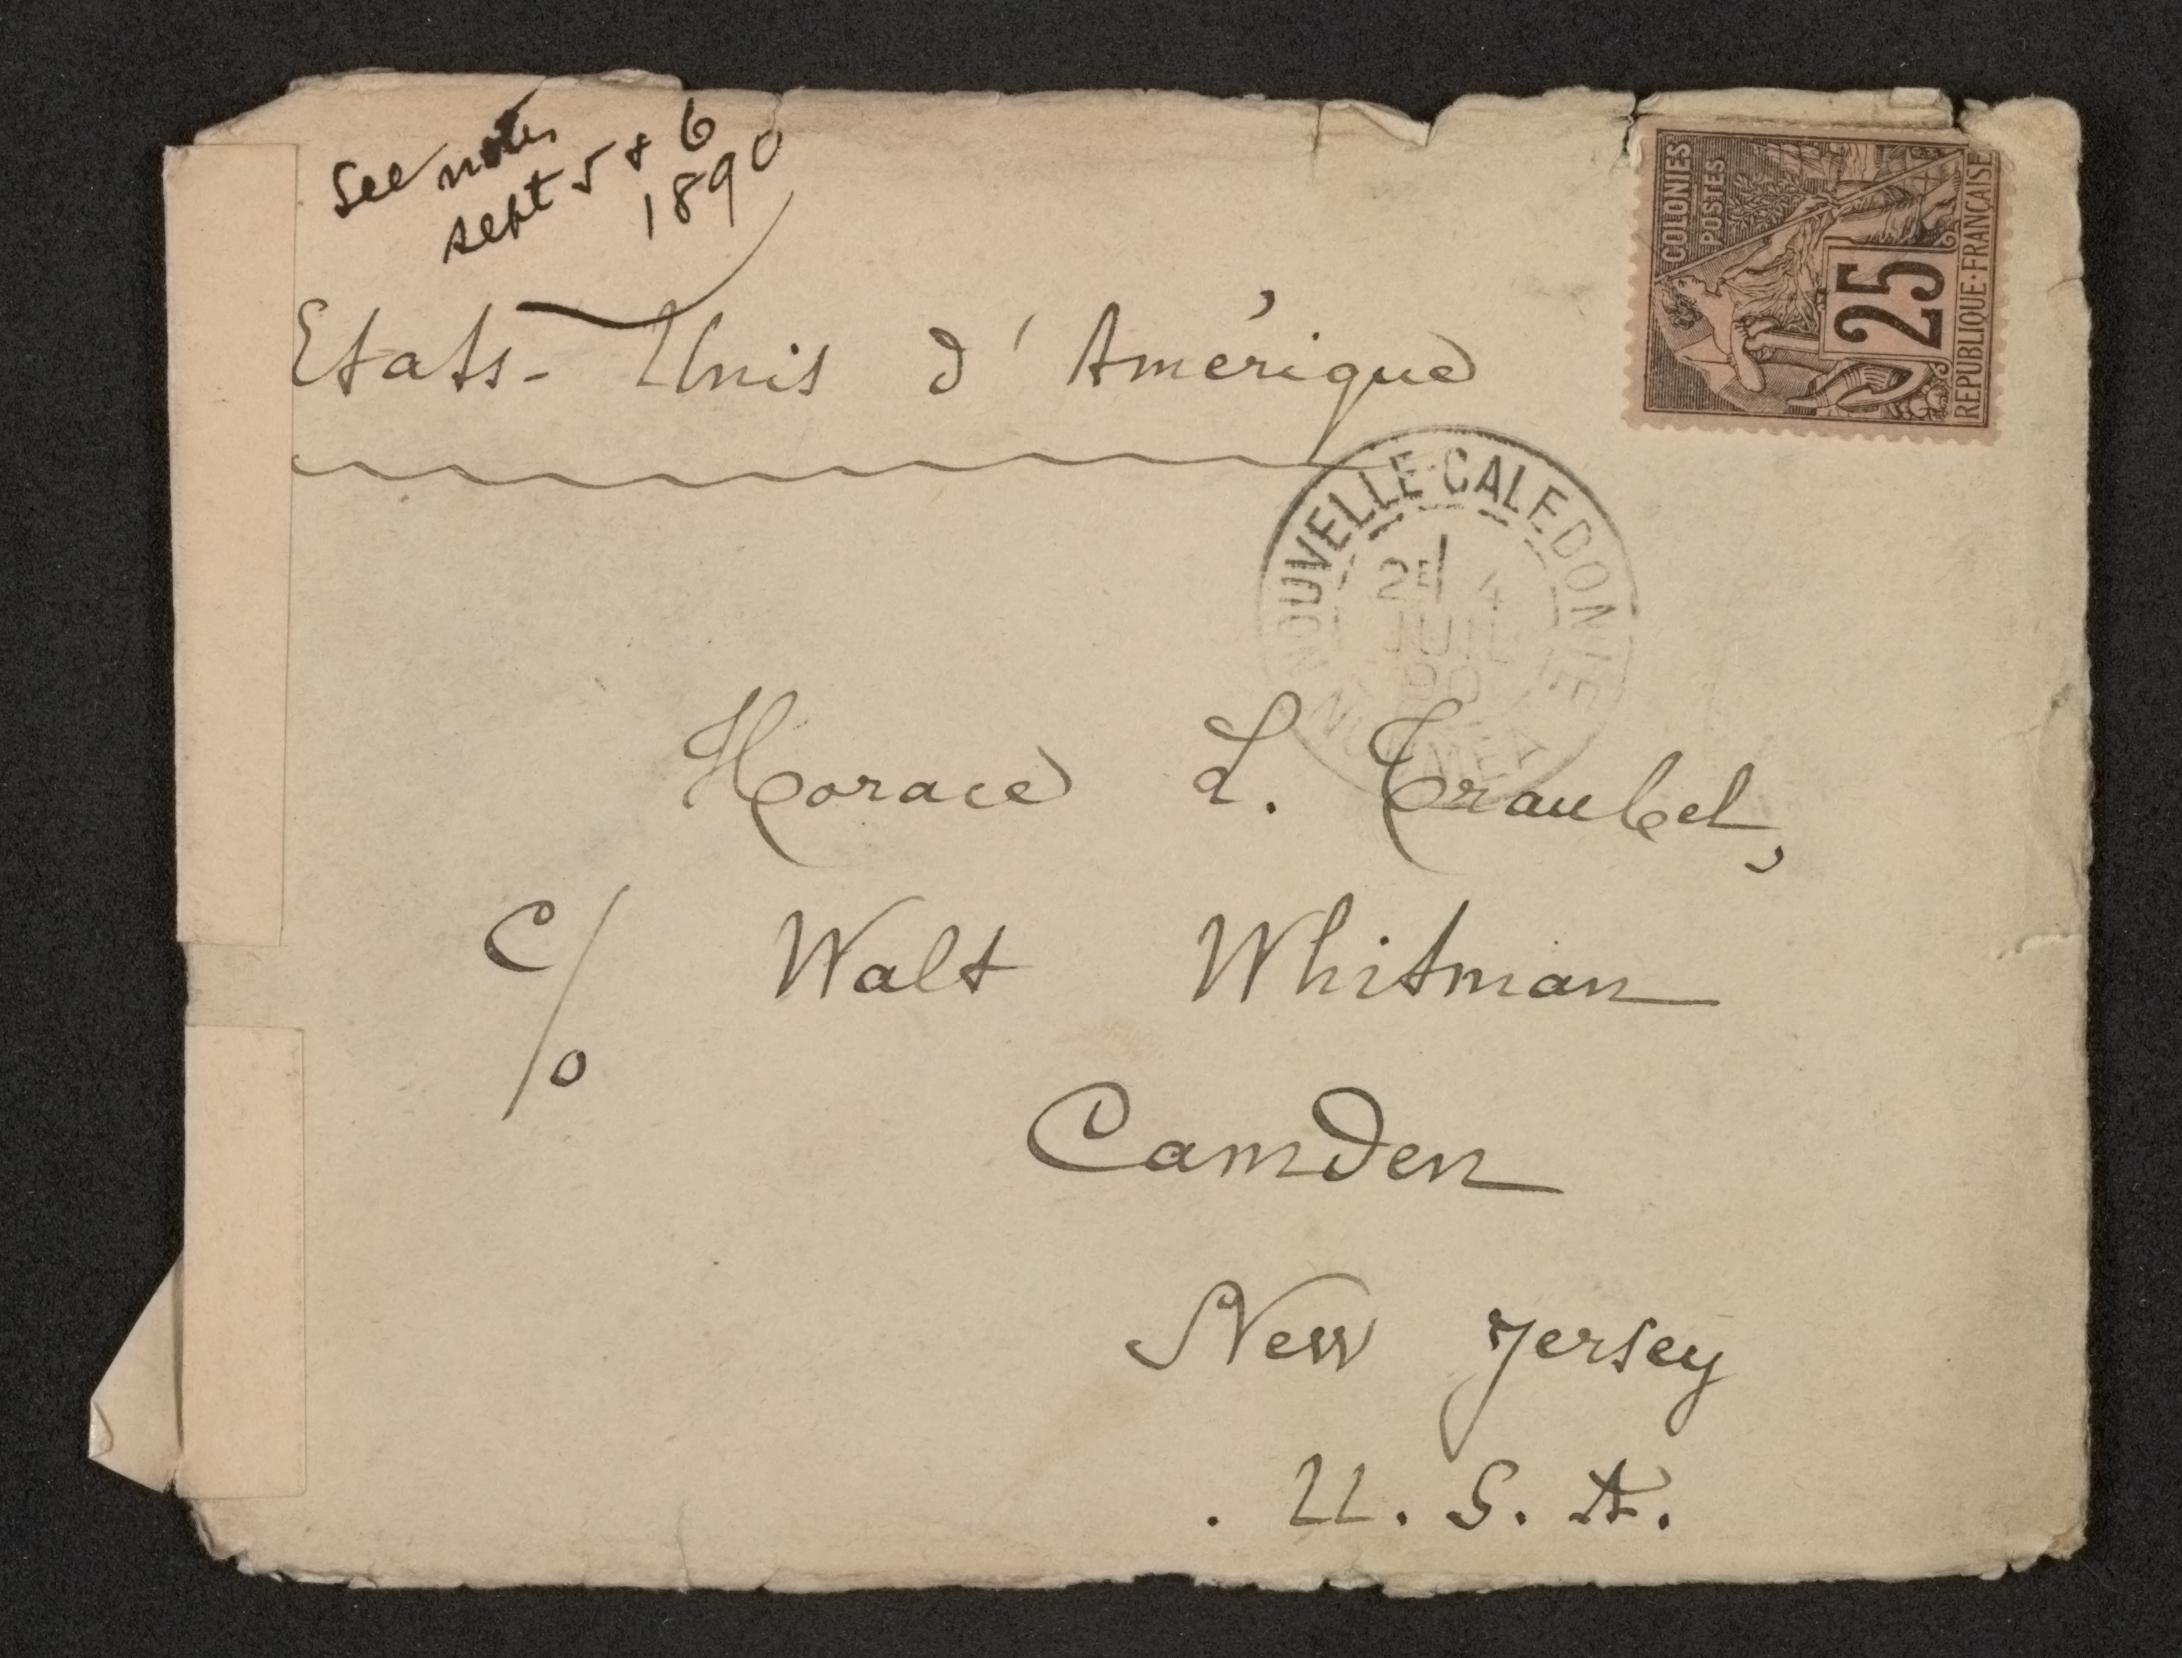 See notes
sept 5 & 6
1890
COLONIES
POSTES
25
REPUBLIQUE·FRANCAISE
Etats-Unis d'Amérique
NOUVELLE-CALEDONIE
2E 4
JUIL
90
NOUMEA
Horace L. Traubel,
C/o Walt Whitman
Camden
New Jersey
U.S.A.